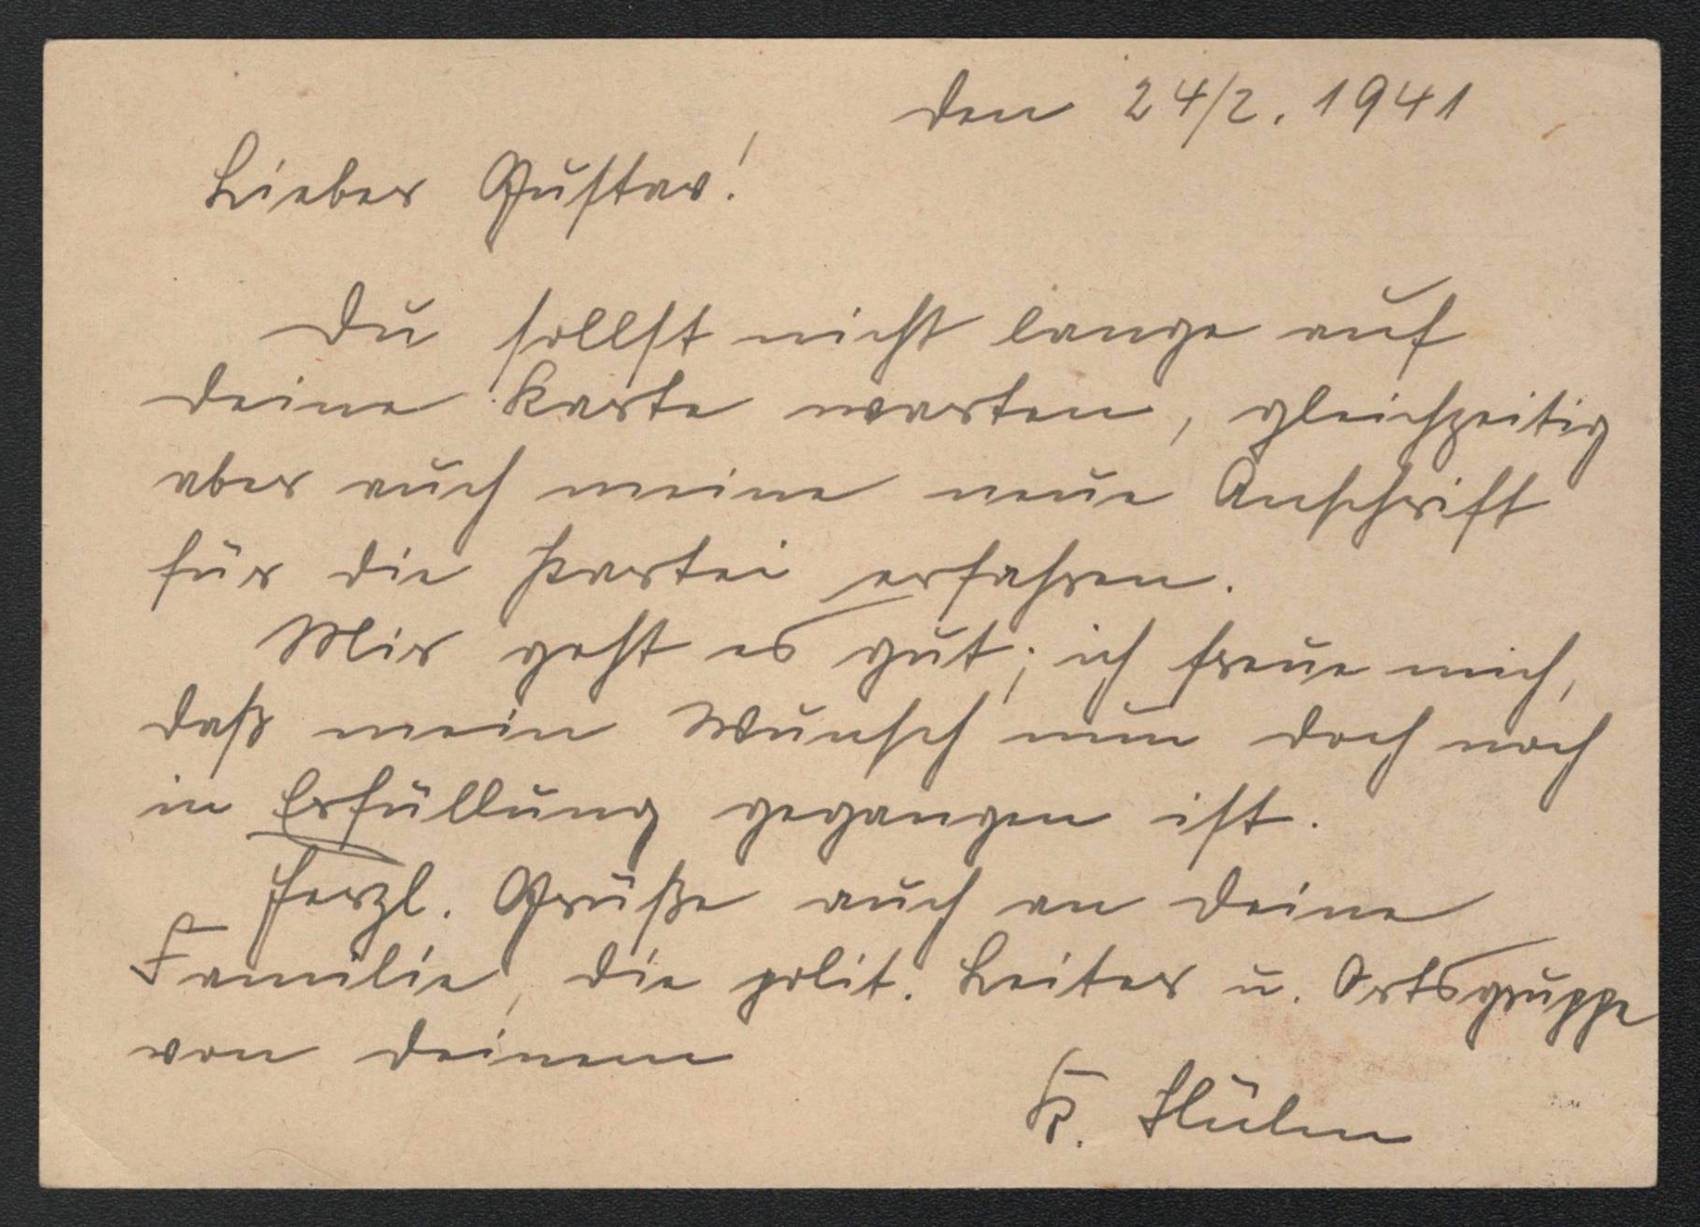 den 24/2. 1941
Lieber Gustav!
Du sollst nicht lange auf
deine Karte warten, gleichzeitig
aber auch meine neue Anschrift
für die Partei erfahren.
Mir geht es gut; ich freue mich,
daß mein Wunsch nun doch noch
in Erfüllung gegangen ist.
Herzl. Grüße auch an deine
Familie, die polit. Leiter u. Ortsgruppe
von deinem